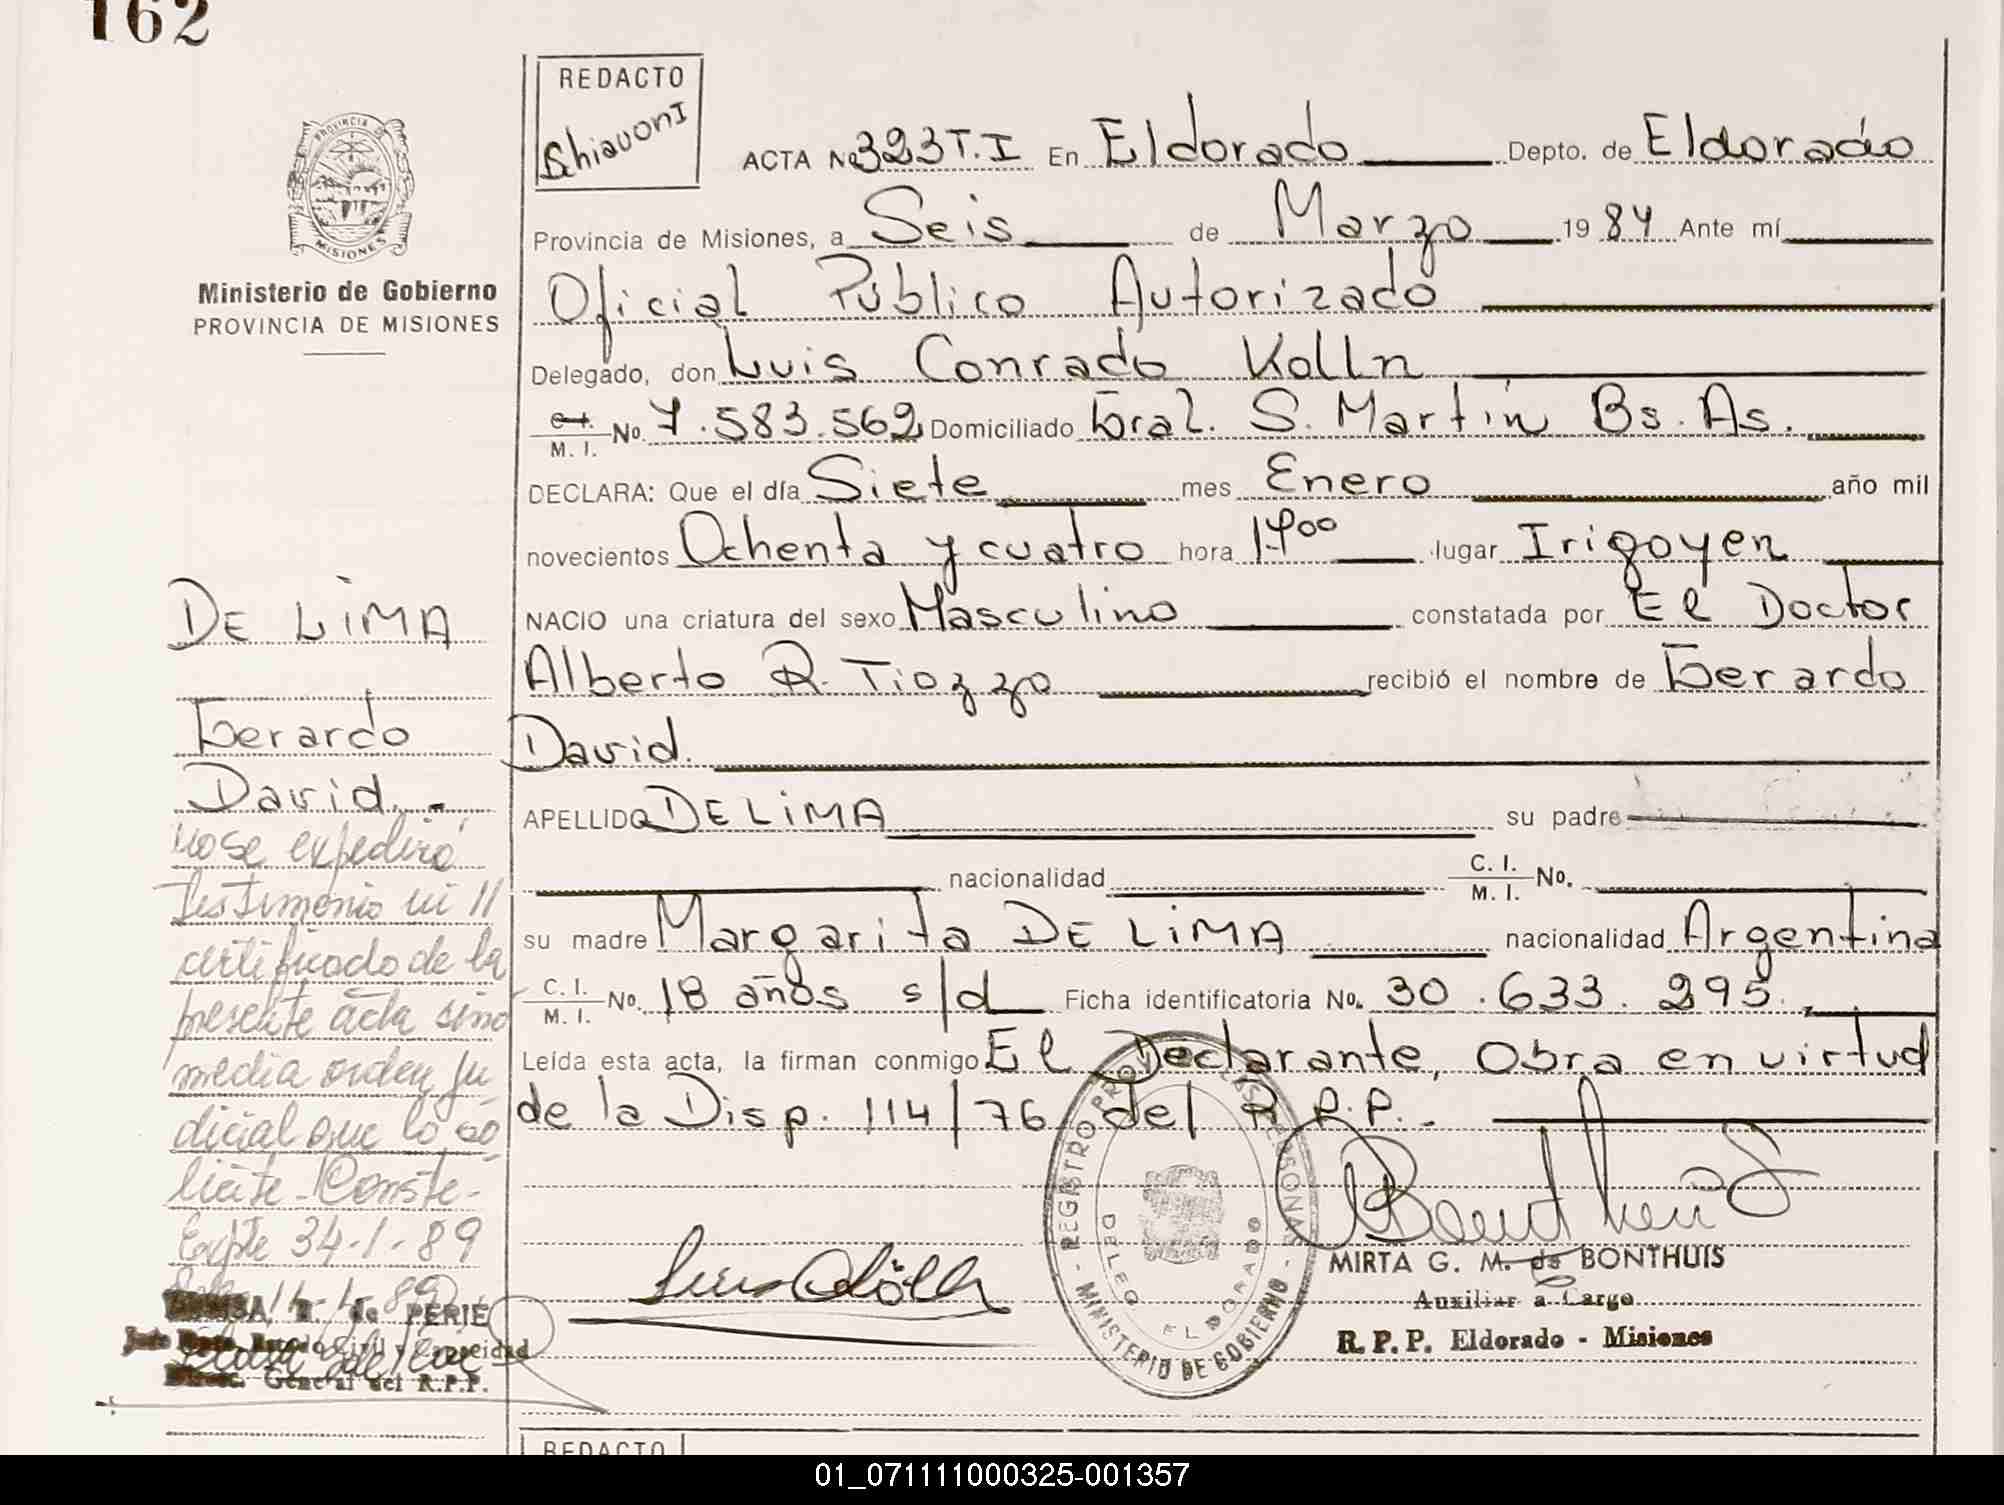 162
REDACTO
Schiavoni
ACTA No 323 T.I En Eldorado Depto. de Eldorado
Provincia de Misiones, a Seis de Marzo 1984 Ante mí
PROVINCIA DE
MISIONES
Ministerio de Gobierno
PROVINCIA DE MISIONES
Oficial Público Autorizado
Delegado, don Luis Conrado Kolln
C.I. M. I. No. 7.583.562 Domiciliado Gral. S. Martín Bs. As.
DECLARA: Que el día Siete mes Enero año mil
novecientos Ochenta y cuatro hora 1400 lugar Irigoyen
NACIO una criatura del sexo Masculino constatada por El Doctor
Alberto R. Tiozzo recibió el nombre de Gerardo
David.
APELLIDO DE LIMA su padre
nacionalidad C. I. M. I. No.
su madre Margarita DE LIMA nacionalidad Argentina
C. I. M. I. No. 18 años s/d Ficha identificatoria No. 30.633.295.
Leída esta acta, la firman conmigo El Declarante, Obra en virtud
de la Disp. 114/76 del R.P.P.-
DE LIMA
Gerardo
David.-
No se expedirá
testimonio ni
certificado de la
presente acta sino
media orden ju
dicial que lo so
licite - Conste -
Expte 34-1-89
de PERIE
Estado Civil y Capacidad
General del R.P.P.
REGISTRO PERSONAS
DELEG ELDORADO
- MINISTERIO DE GOBIERNO -
MIRTA G. M. de BONTHUIS
Auxiliar a Cargo
R. P. P. Eldorado - Misiones
REDACTO
01_071111000325-001357